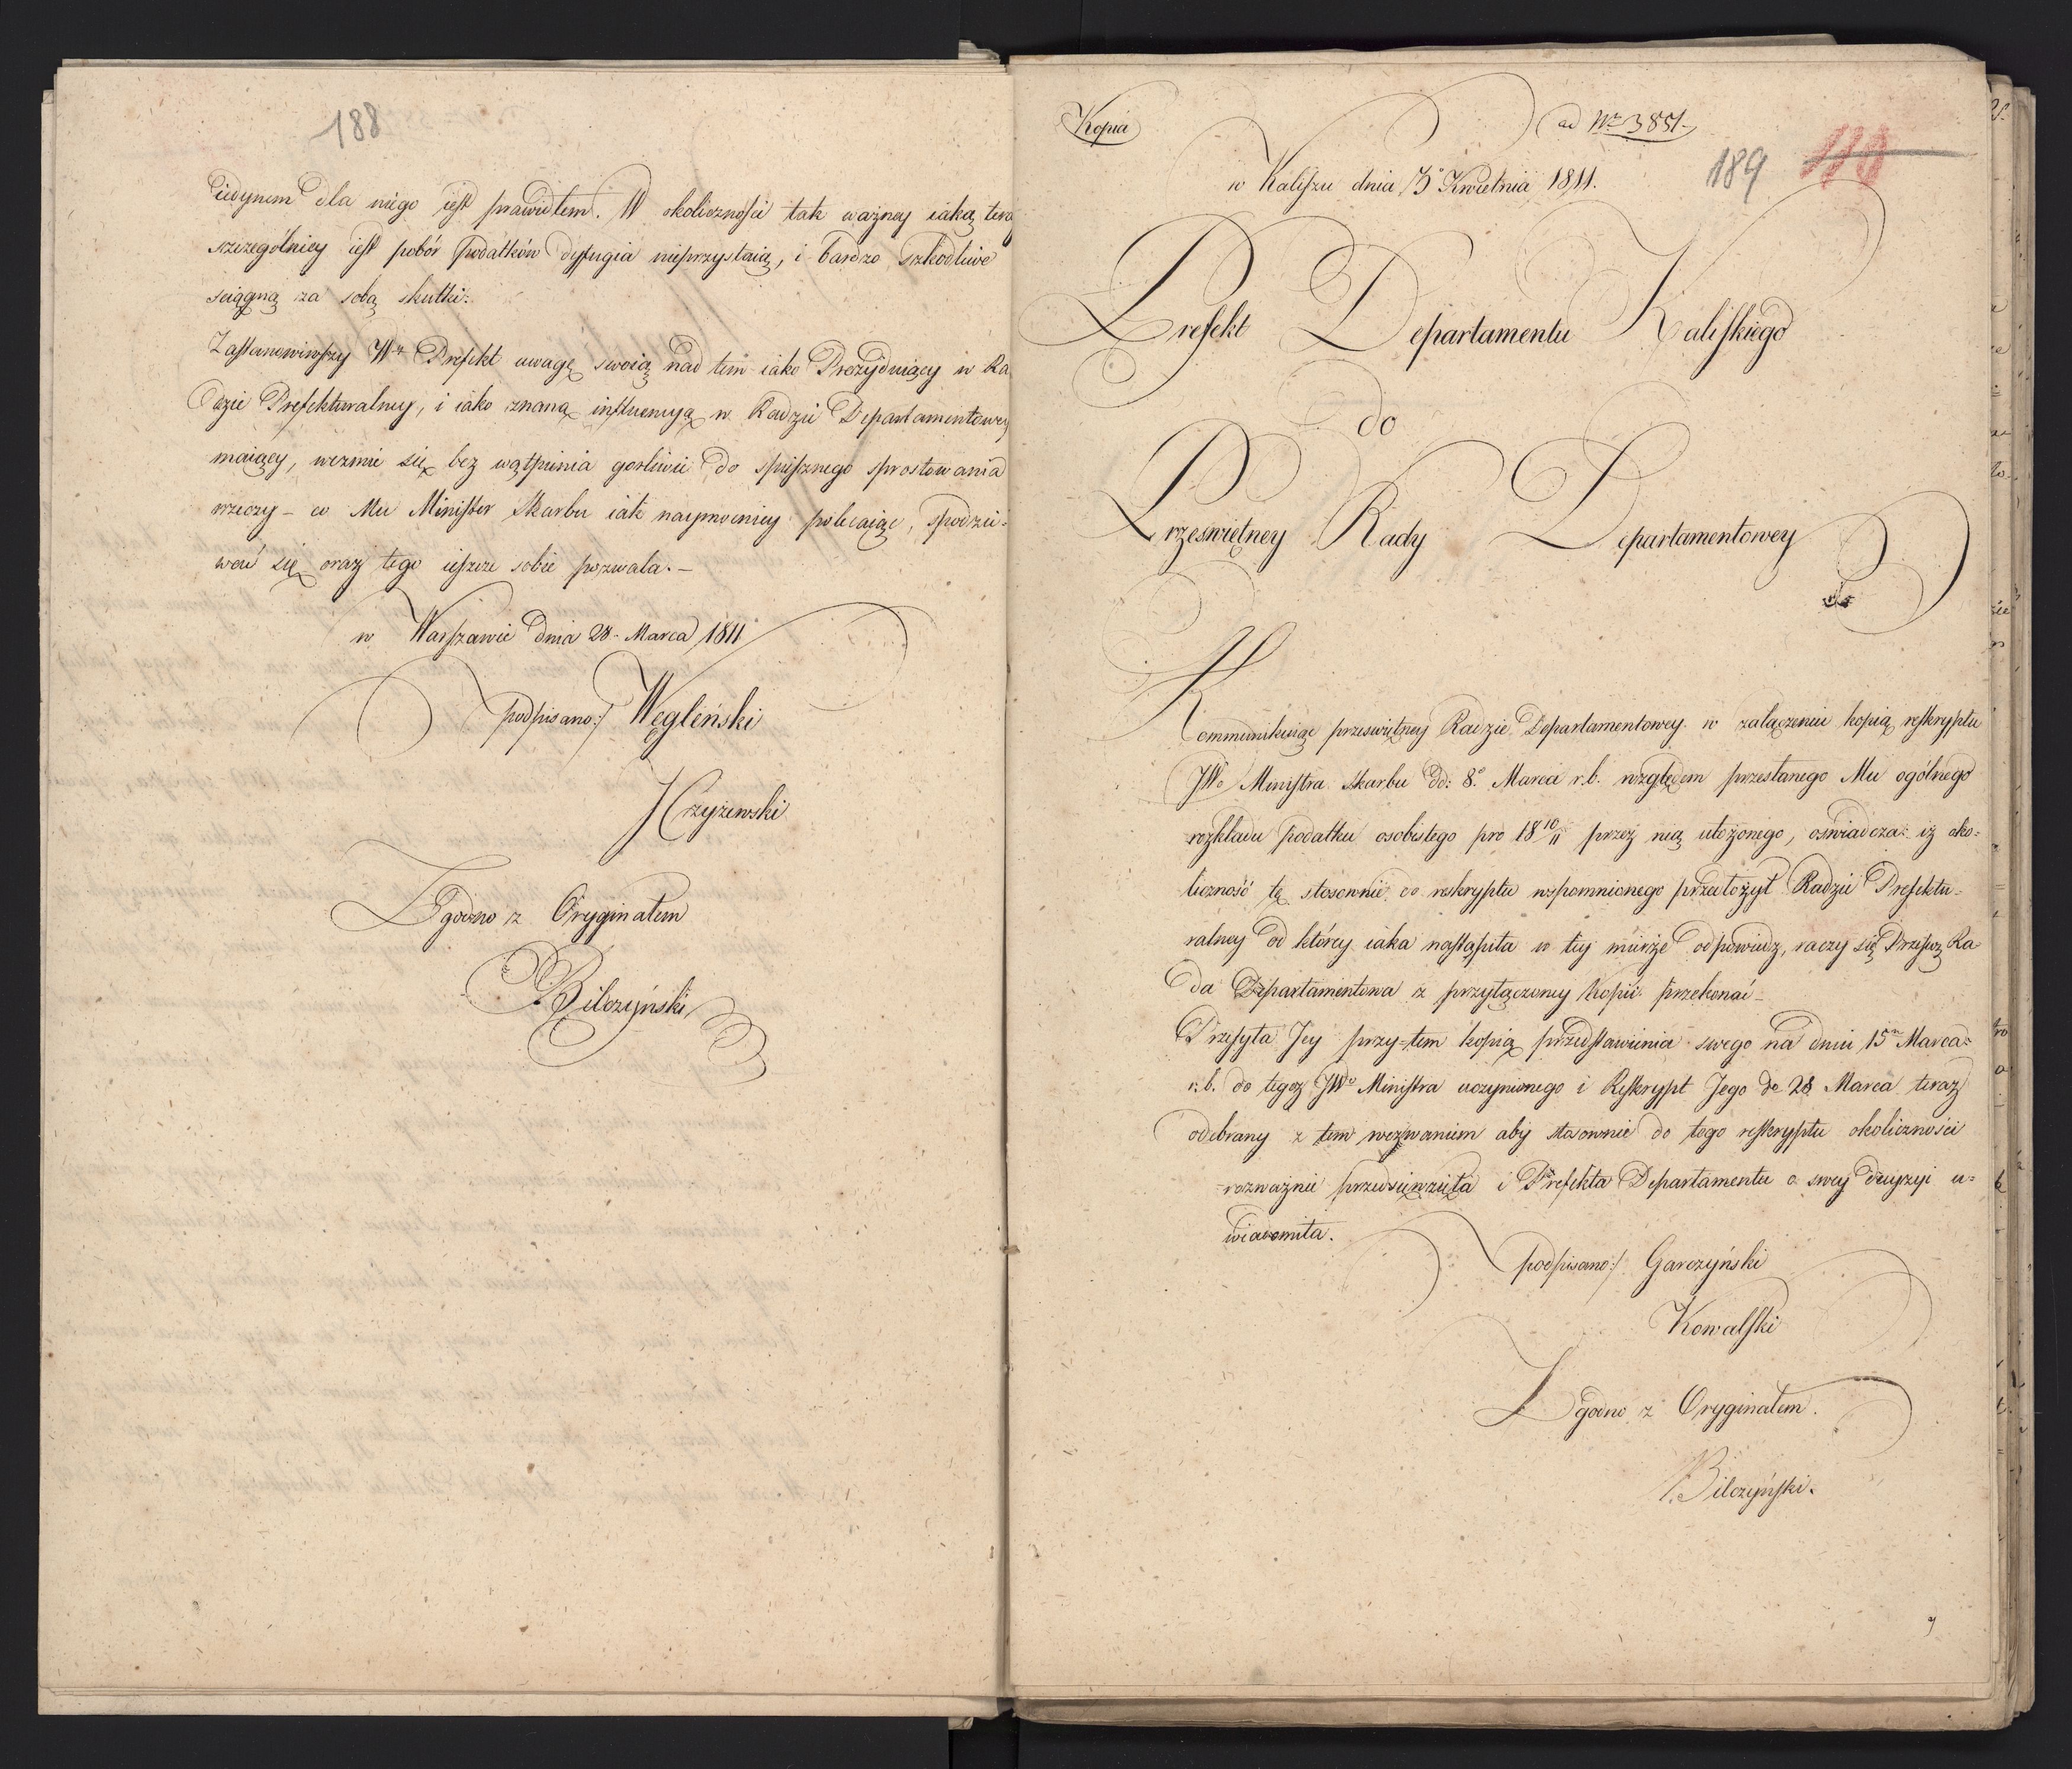 188
iedynem dla niego iest prawidłem. W okoliczności tak ważney iaką
szczególniey iest pobór podatków dyfugia nieprzystaią, i bardzo szkodliwe
sciągną za sobą skutki.
Zastanowiwszy Wr Prefekt uwagę swoią nad tem iako Prezyduiący w Ra
dzie Prefekturalney, i iako znaną influencyą w Radzie Departamentowey
maiący, weźmie się bez wątpienia gorliwie do spiesznego sprostowania
rzeczy – co Mu Minister Skarbu iak naymocniey polecaiąc, spodzie:
wać się oraz tego ieszcze sobie pozwala. –
w Warszawie dnia 28 Marca 1811
podpisano:/ Węgleński
J Czyżewski
Zgodno z Oryginałem
Bilczyński
Kopia
ad Nr 3851.
w Kaliszu dnia 5o Kwietnia 1811.
189
118
Prefekt Departamentu Kaliskiego
do
Przeświętney Rady Departamentowey
Kommunikuiąc przeświętney Radzie Departamentowey w załączeniu kopią reskryptu
JWo Ministra Skarbu dd: 8o Marca r.b. względem przesłanego Mu ogólnego
rozkładu podatku osobistego pro 18 10/11 przez nią ułożonego, oświadcza: iż oko-
liczność tę stosownie do reskryptu wspomnionego przełożył Radzie Prefektu-
ralney od którey iaka nastąpiła w tey mierze odpowiedz, raczy się Prześwą Ra
da Departamentowa z przyłączoney kopii przekonać –
Przesyła Jey przy-tem kopią przedstawienia swego na dniu 15m Marca
r.b. do tegoż JWo Ministra uczynionego i Reskrypt Jego de 28 Marca teraz
odebrany z tem wezwaniem aby stosownie do tego reskryptu okoliczności
rozważnie przedsięwzięła i Prefekta Departamentu o swey decyzyi u-
wiadomiła.
podpisano:/ Garczyński
Kowalski
Zgodno z Oryginałem.
Bilczyński.